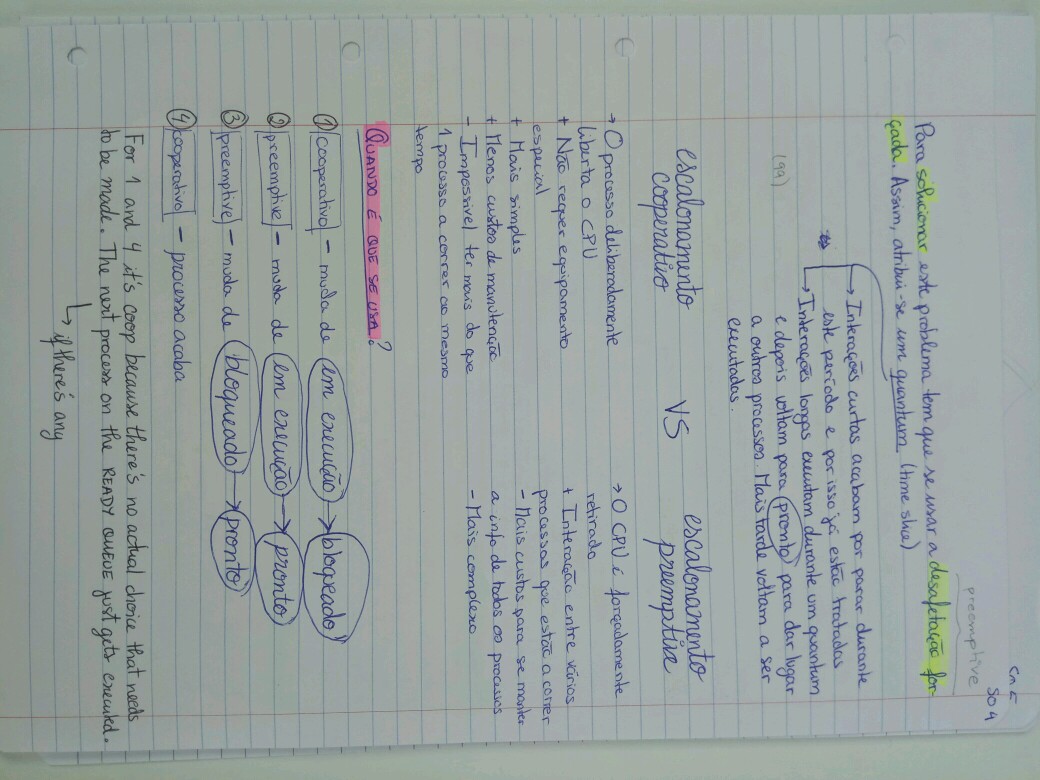 SO 4
preemptive
Para solucionar este problema tem que se usar a desafetação for-
çada. Assim, atribui-se um quantum (time slice)
→ Interações curtas acabam por parar durante
este período e por isso já estão tratadas
→ Interações longas executam durante um quantum
e depois voltam para pronto para dar lugar
(99)
a outros processos. Mais tarde voltam a ser
executadas.
escalonamento cooperativo VS escalonamento preemptive
→ O processo deliberadamente
liberta o CPU
+ Não requer equipamento
especial
+ Mais simples
+ Menos custos de manutenção
- Impossivel ter mais do que
1 processo a correr ao mesmo
tempo
→ O CPU é forçadamente
retirado
+ Interação entre vários
processos que estão a correr
- Mais custos para se manter
a info de todos os processos
- Mais complexo
QUANDO É QUE SE USA?
① cooperativo - muda de em execução → bloqueado
② preemptive - muda de em execução → pronto
③ preemptive - muda de bloqueado → pronto
④ cooperativo - processo acaba
For 1 and 4 it's coop because there's no actual choice that needs
to be made. The next process on the READY QUEUE just gets executed.
↳ if there's any